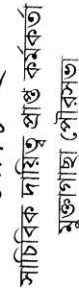 সাচিবিক দায়িত্ব প্রাপ্ত কর্মকর্তা
মুক্তাগাছা পৌরসভা